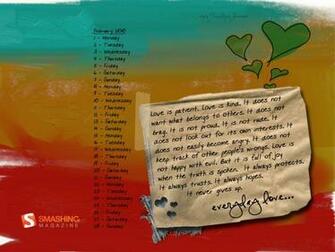 February 2010
1 - Monday
2 - Tuesday
3 - Wednesday
4 - Thursday
5 - Friday
6 - Saturday
7 - Sunday
8 - Monday
9 - Tuesday
10 - Wednesday
11 - Thursday
12 - Friday
13 - Saturday
14 - Sunday
15 - Monday
16 - Tuesday
17 - Wednesday
18 - Thursday
19 - Friday
20 - Saturday
21 - Sunday
22 - Monday
23 - Tuesday
24 - Wednesday
25 - Thursday
26 - Friday
27 - Saturday
28 - Sunday
Love is patient. Love is kind. It does not
want what belongs to others. It does not
brag. It is not proud. It is not rude. It
does not look out for its own interests. It
does not easily become angry. It does not
keep track of other people's wrongs. Love is
not happy with evil. But it is full of joy
when the truth is spoken. It always protects.
It always trusts. It always hopes.
It never gives up.
everyday love...
SMASHING
MAGAZINE